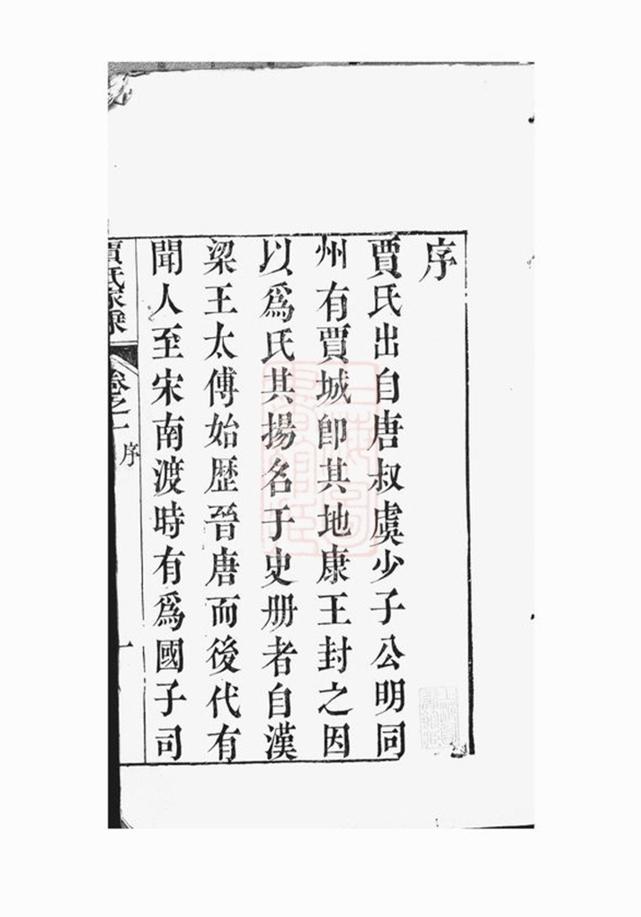 序
賈氏出自唐叔虞少子公明同
州有賈城卽其地康王封之因
以爲氏其揚名于史册者自漢
梁王太傅始歷晉唐而後代有
聞人至宋南渡時有爲國子司
賈氏家乘
卷之一
序
一